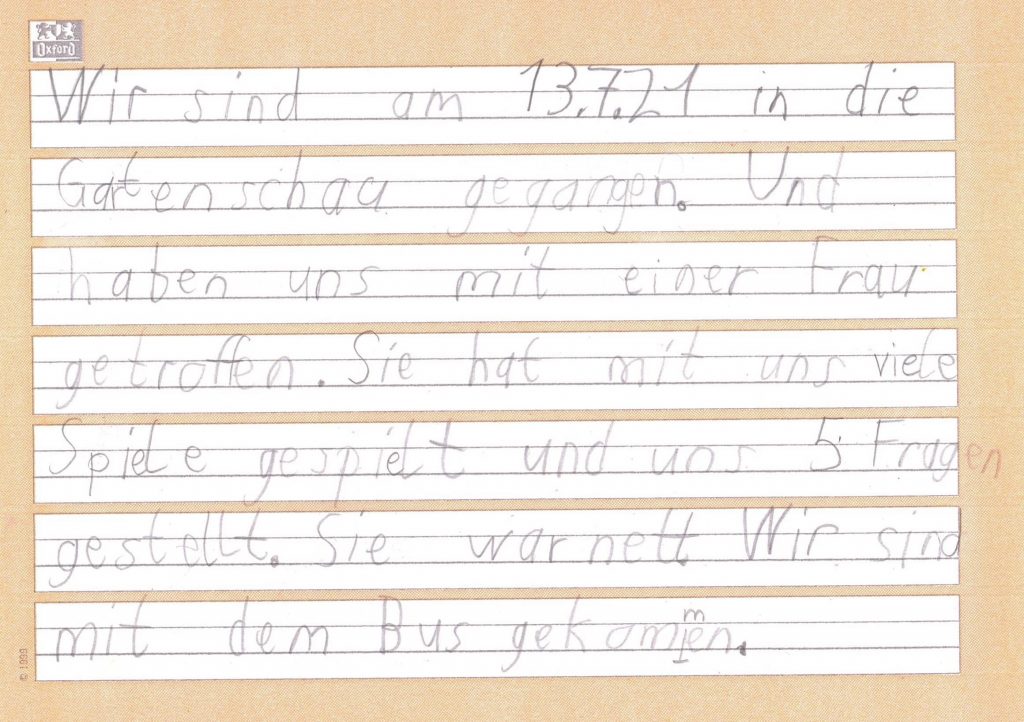 OxforD
Wir sind am 13.7.21 in die
Gartenschau gegangen. Und
haben uns mit einer Frau
getroffen. Sie hat mit uns viele
Spiele gespielt und uns 5 Fragen
gestellt. Sie war nett Wir sind
mit dem Bus gekommen.
© 1999